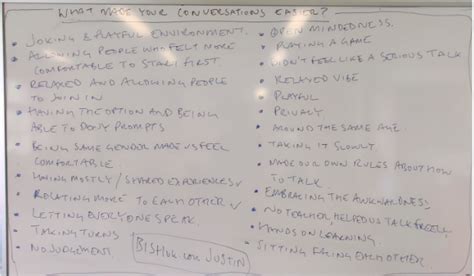 WHAT MADE YOUR CONVERSATIONS EASIER?
• JOKING & PLAYFUL ENVIRONMENT.
• ALLOWING PEOPLE WHO FELT MORE
COMFORTABLE TO START FIRST
• RELAXED AND ALLOWING PEOPLE
TO JOIN IN
• HAVING THE OPTION AND BEING
ABLE TO DENY PROMPTS
• BEING SAME GENDER MADE US FEEL
COMFORTABLE.
• HAVING MOSTLY / SHARED EXPERIENCES ✓
• RELATING MORE TO EACH OTHER ✓
• LETTING EVERYONE SPEAK.
• TAKING TURNS
• NO JUDGEMENT.
• OPEN MINDEDNESS.
• PLAYING A GAME
• DIDN'T FEEL LIKE A SERIOUS TALK
• RELAXED VIBE
• PLAYFUL
• PRIVACY
• AROUND THE SAME AGE.
• TAKING IT SLOWLY
• MADE OUR OWN RULES ABOUT HOW
TO TALK.
• EMBRACING THE AWKWARDNESS!
• NO TEACHER HELPED US TALK FREELY!
• HANDS ON LEARNING.
• SITTING FACING EACH OTHER.
JUSTIN